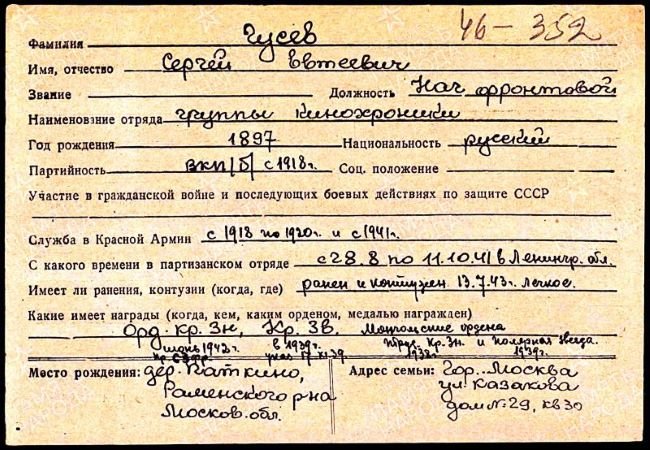 46-352
Фамилия Гусев
Имя, отчество Сергей Евтеевич
Звание Должность Нач фронтовой
Наименование отряда группы кинохроники
Год рождения 1897 Национальность русский
Партийность ВКП/б/ с 1918г. Соц. положение
Участие в гражданской войне и последующих боевых действиях по защите СССР
Служба в Красной Армии с 1918 по 1920г. и с 1941г.
С какого времени в партизанском отряде с 28.8 по 11.10.41 в Ленингр. обл.
Имеет ли ранения, контузии (когда, где) ранен и контужен 13.7.43г. легкое.
Какие имеет награды (когда, кем, каким орденом, медалью награжден)
Орд. Кр. Зн, Кр. Зв. Монгольские ордена
июнь 1942г. в 1939г. Труд. Кр. Зн. и полярная звезда.
указ 17.XI.39. 1938г. 1939г.
Место рождения: дер. Паткино,
Раменского р-на
Москов. обл.
Адрес семьи: Гор. Москва
ул. Казакова
дом № 29, кв 30